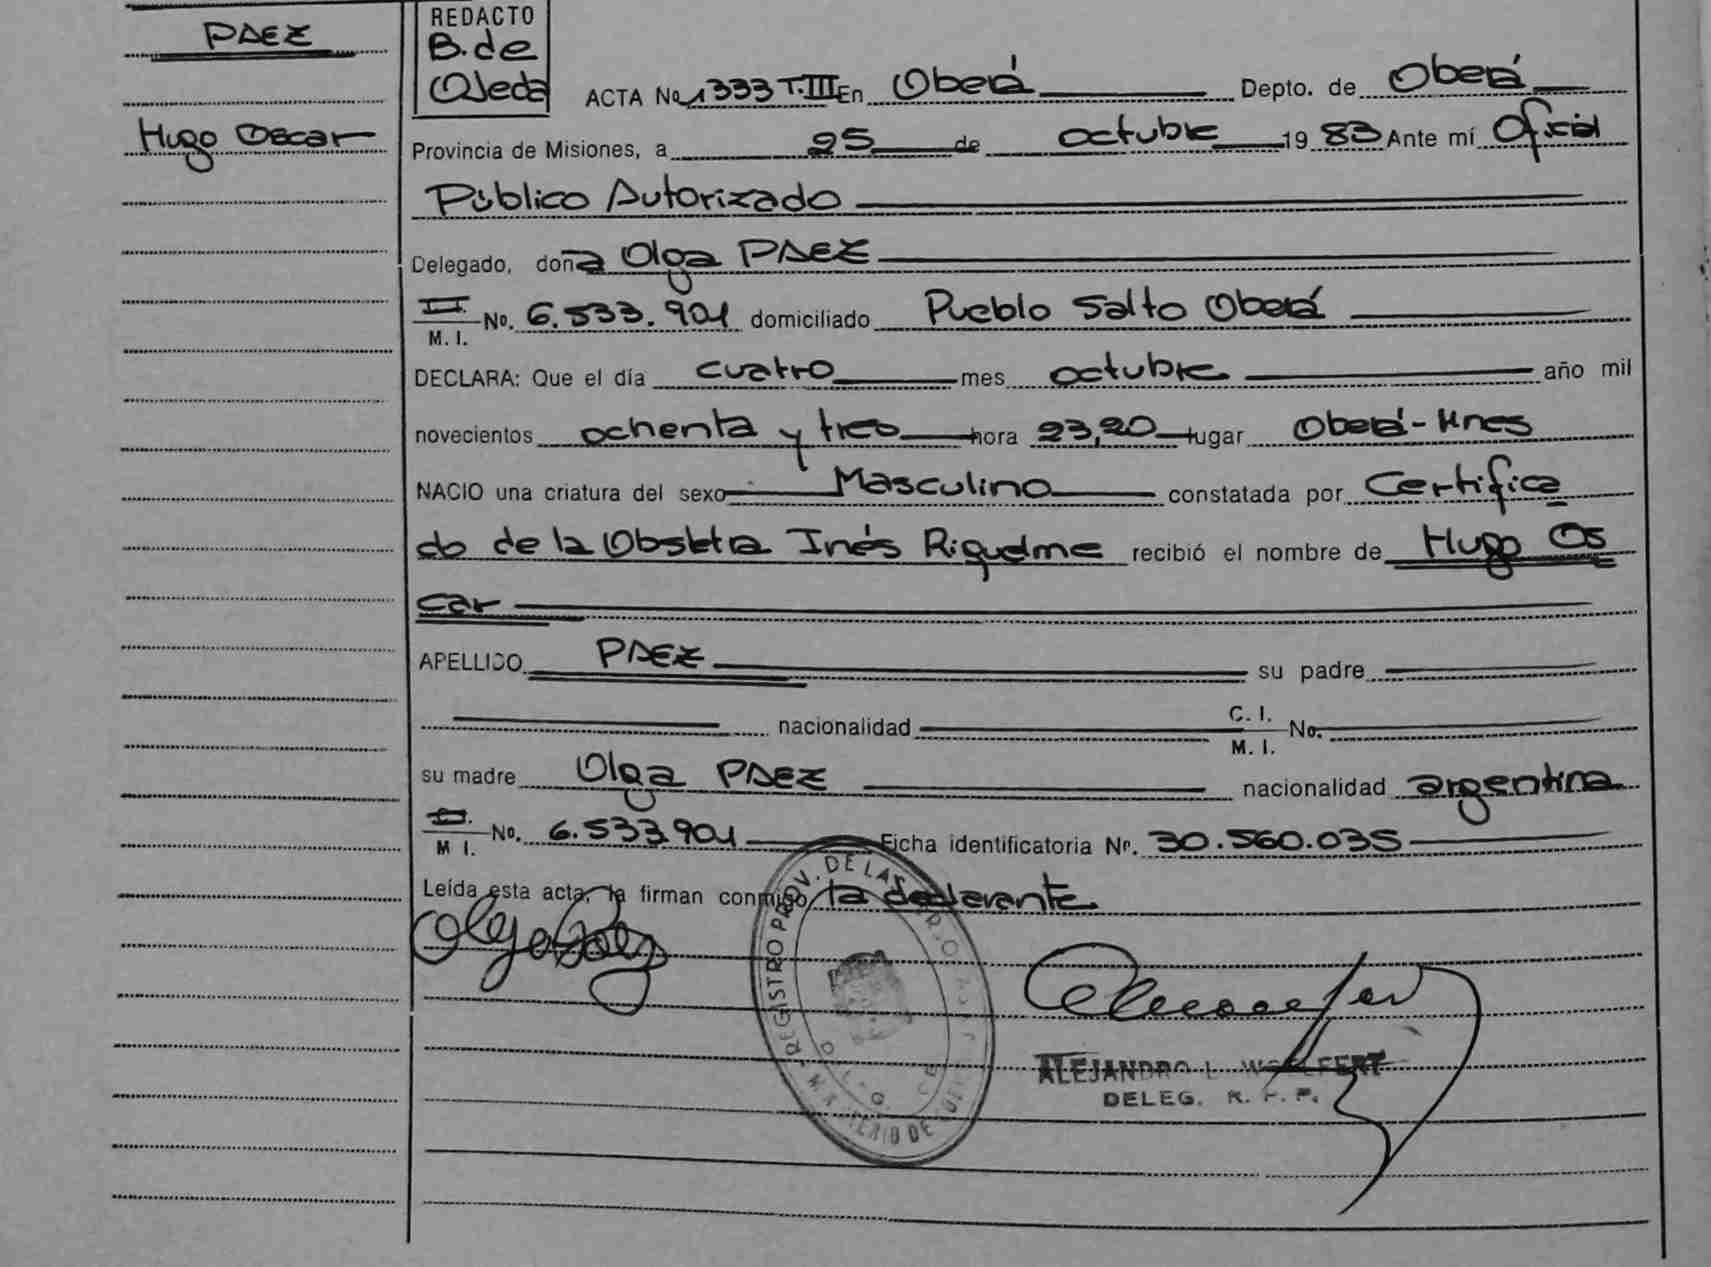 PAEZ
Hugo Oscar
REDACTO
B. de
Ojeda
ACTA No 1333 T. III En Oberá Depto. de Oberá
Provincia de Misiones, a 25 de octubre 1983 Ante mí Oficial
Público Autorizado
Delegado, doña Olga PAEZ
M. I. No. 6.533.901 domiciliado Pueblo Salto Oberá
DECLARA: Que el día cuatro mes octubre año mil
novecientos ochenta y tres hora 23,20 lugar Oberá-Mnes
NACIO una criatura del sexo Masculino constatada por Certifica
do de la Obstetra Inés Riquelme recibió el nombre de Hugo Os
car
APELLIDO PAEZ su padre
nacionalidad C. I. M. I. No.
su madre Olga PAEZ nacionalidad argentina
M I. No. 6.533.901 Ficha identificatoria Nº. 30.560.035
Leída esta acta, la firman conmigo la declarante
Olga Paez
REGISTRO PROV. DE LAS
MINISTERIO DE
ALEJANDRO L. WOLFERT
DELEG. R. P. P.